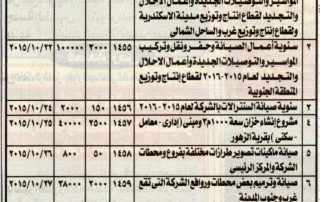 المواسير والتوصيلات الجديدة وأعمال الاحلال
والتجديد لقطاع إنتاج وتوزيع مدينة الاسكندرية
ولقطاع إنتاج وتوزيع غرب والساحل الشمالى
٢ سنوية أعمال الصيانة وحفر ونقل وتركيب المواسير والتوصيلات الجديدة وأعمال الاحلال والتجديد لعام ٢٠١٥-٢٠١٦ لقطاع إنتاج وتوزيع المنطقة الجنوبية ١٤٥٥ ٣٠٠٠ ١٠٠٠٠٠ ٢٠١٥/١٠/٢٢
٣ سنوية صيانة السنترالات بالشركة لعام ٢٠١٥-٢٠١٦ ١٤٥٦ ١٥٠ ٢٠٠٠ ٢٠١٥/١٠/٢٤
٤ مشروع إنشاء خزان سعة ١٠٠٠م٢ ومبنى (إدارى - معامل - سكنى) بقرية الزهور ١٤٥٧ ٢٥٠٠ ٤٠٠٠٠ ٢٠١٥/١٠/٢٥
٥ صيانة ماكينات تصوير طرازات مختلفة بفروع ومحطات الشركة والمركز الرئيسى ١٤٥٨ ٥٠ ٨٠٠ ٢٠١٥/١٠/٢٦
٦ صيانة وترميم بعض محطات وروافع الشركة التى تقع غرب وجنوب المدينة ١٤٥٩ ٣٠٠٠ ٣٨٠٠٠ ٢٠١٥/١٠/٢٧